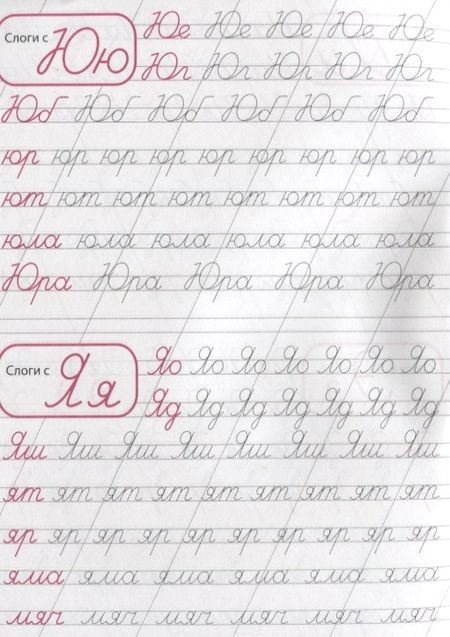 Слоги с Юю Юе Юе Юе Юе Юе
Юг Юг Юг Юг Юг
Юб Юб Юб Юб Юб Юб
юр юр юр юр юр юр юр юр юр
ют ют ют ют ют ют ют ют
юла юла юла юла юла юла
Юра Юра Юра Юра Юра
Слоги с Яя Яо Яо Яо Яо Яо Яо Яо
Яд Яд Яд Яд Яд Яд Яд
Яш Яш Яш Яш Яш Яш Яш Яш
ят ят ят ят ят ят ят ят ят
яр яр яр яр яр яр яр яр яр
яма яма яма яма яма яма
мяч мяч мяч мяч мяч мяч